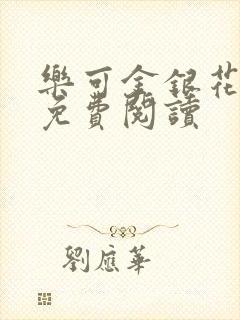 樂可金銀花
免費閱讀
劉應華